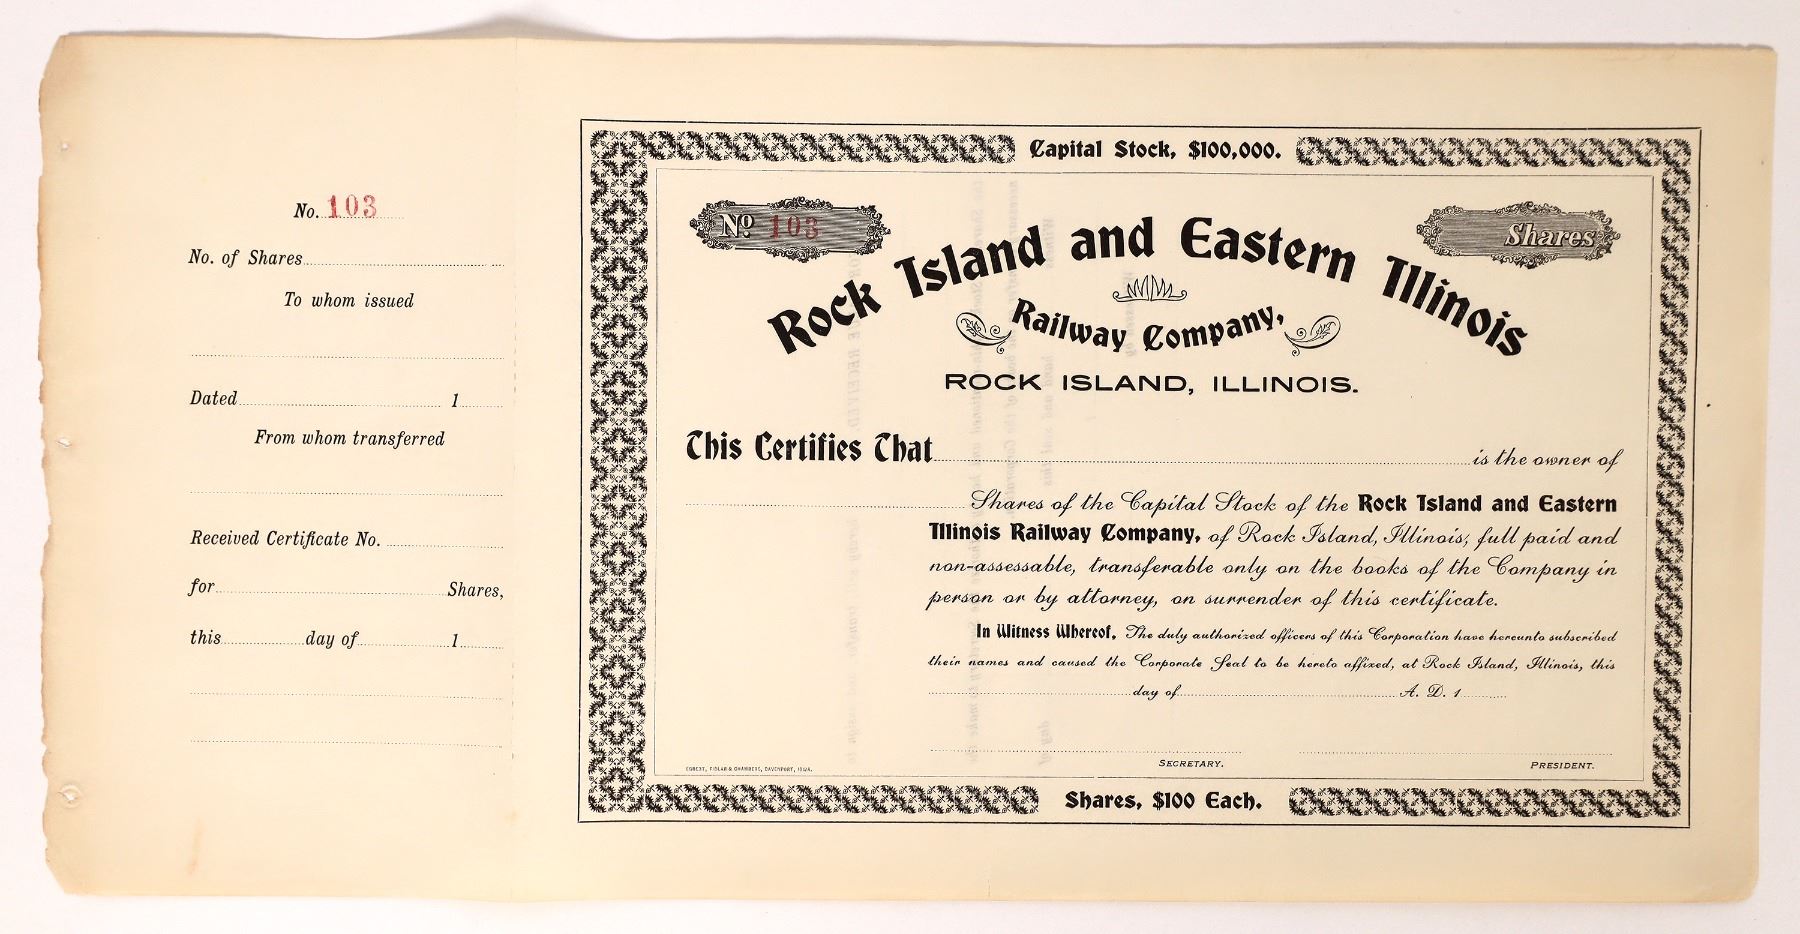 No. 103
No. of Shares
To whom issued
Dated 1
From whom transferred
Received Certificate No.
for Shares,
this day of 1
Capital Stock, $100,000.
No. 103
Shares
Rock Island and Eastern Illinois
Railway Company,
ROCK ISLAND, ILLINOIS.
This Certifies That is the owner of
Shares of the Capital Stock of the Rock Island and Eastern
Illinois Railway Company, of Rock Island, Illinois, full paid and
non-assessable, transferable only on the books of the Company in
person or by attorney, on surrender of this certificate.
In Witness Whereof, The duly authorized officers of this Corporation have hereunto subscribed
their names and caused the Corporate Seal to be hereto affixed, at Rock Island, Illinois, this
day of A. D. 1
SECRETARY. PRESIDENT.
EGBERT, FIDLAR & CHAMBERS, DAVENPORT, IOWA.
Shares, $100 Each.